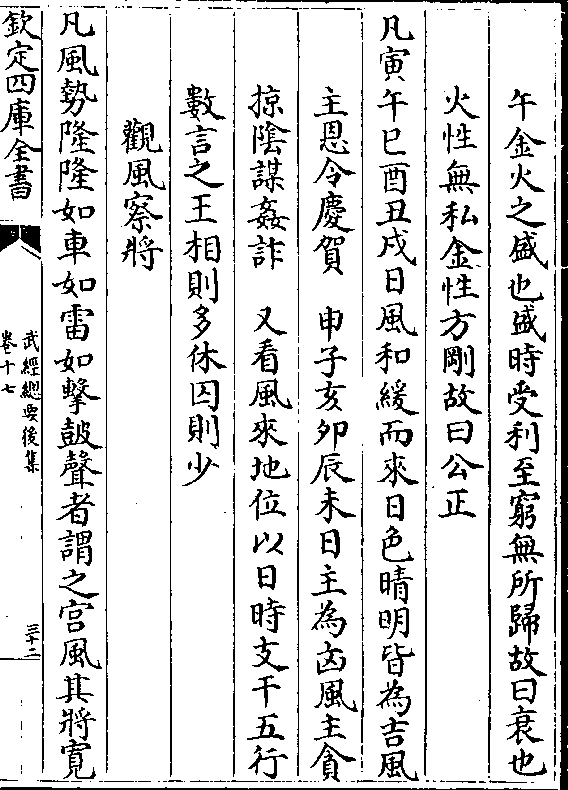 午金火之盛也盛時受利至窮無所歸故曰衰也
火性無私金性方剛故曰公正
凡寅午巳酉丑戌日風和緩而來日色晴明皆為吉風
主恩令慶賀　申子亥卯辰未日主為凶風主貪
掠陰謀姦詐　又看風來地位以日時支干五行
數言之王相則多休囚則少
觀風察將
凡風勢隆隆如車如雷如擊鼓聲者謂之宫風其將寛
欽定四庫全書
武經總要後集
卷十七
三十二